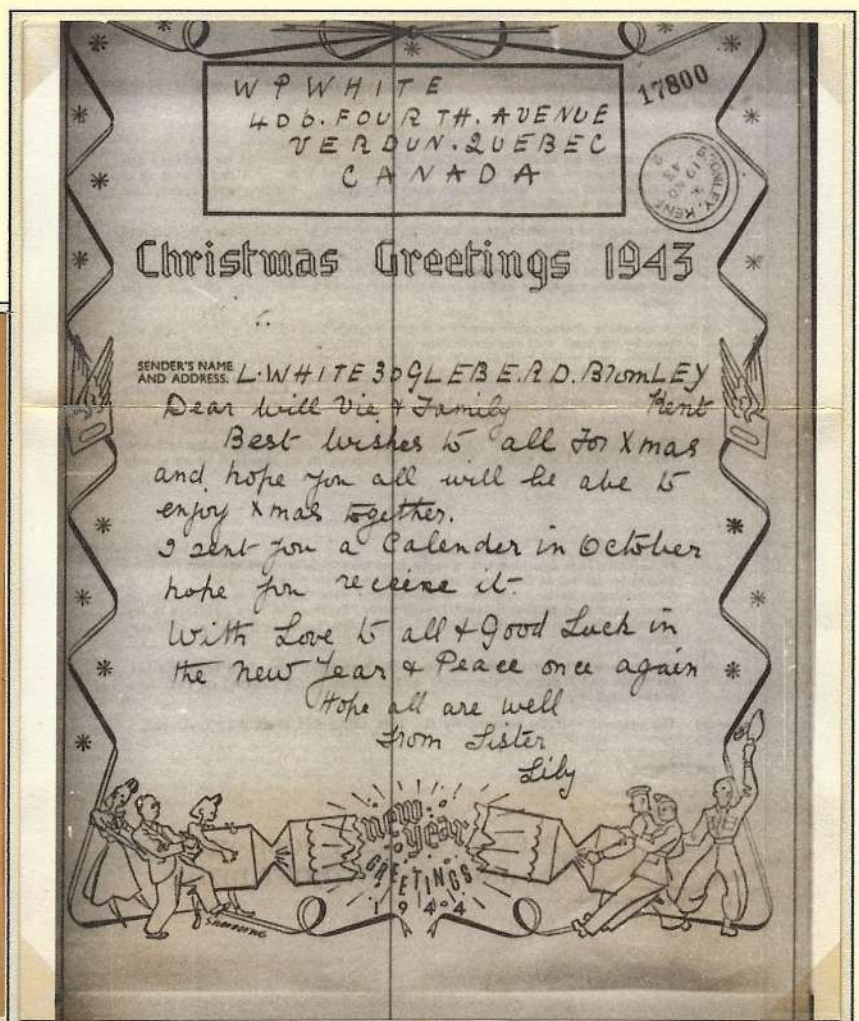 W P WHITE
406. FOURTH. AVENUE
VERDUN. QUEBEC
CANADA
17800
BROMLEY, KENT
19 NO
43
Christmas Greetings 1943
SENDER'S NAME
AND ADDRESS. L. WHITE 30 GLEBE. RD. BromLEY
Kent
Dear Will Vie & Family
Best wishes to all For Xmas
and hope you all will be abe to
enjoy Xmas together.
I sent you a Calender in October
hope you receive it.
With Love to all & Good Luck in
the New Year & Peace once again
Hope all are well
From Sister
Lily
new
year
GREETINGS
1944